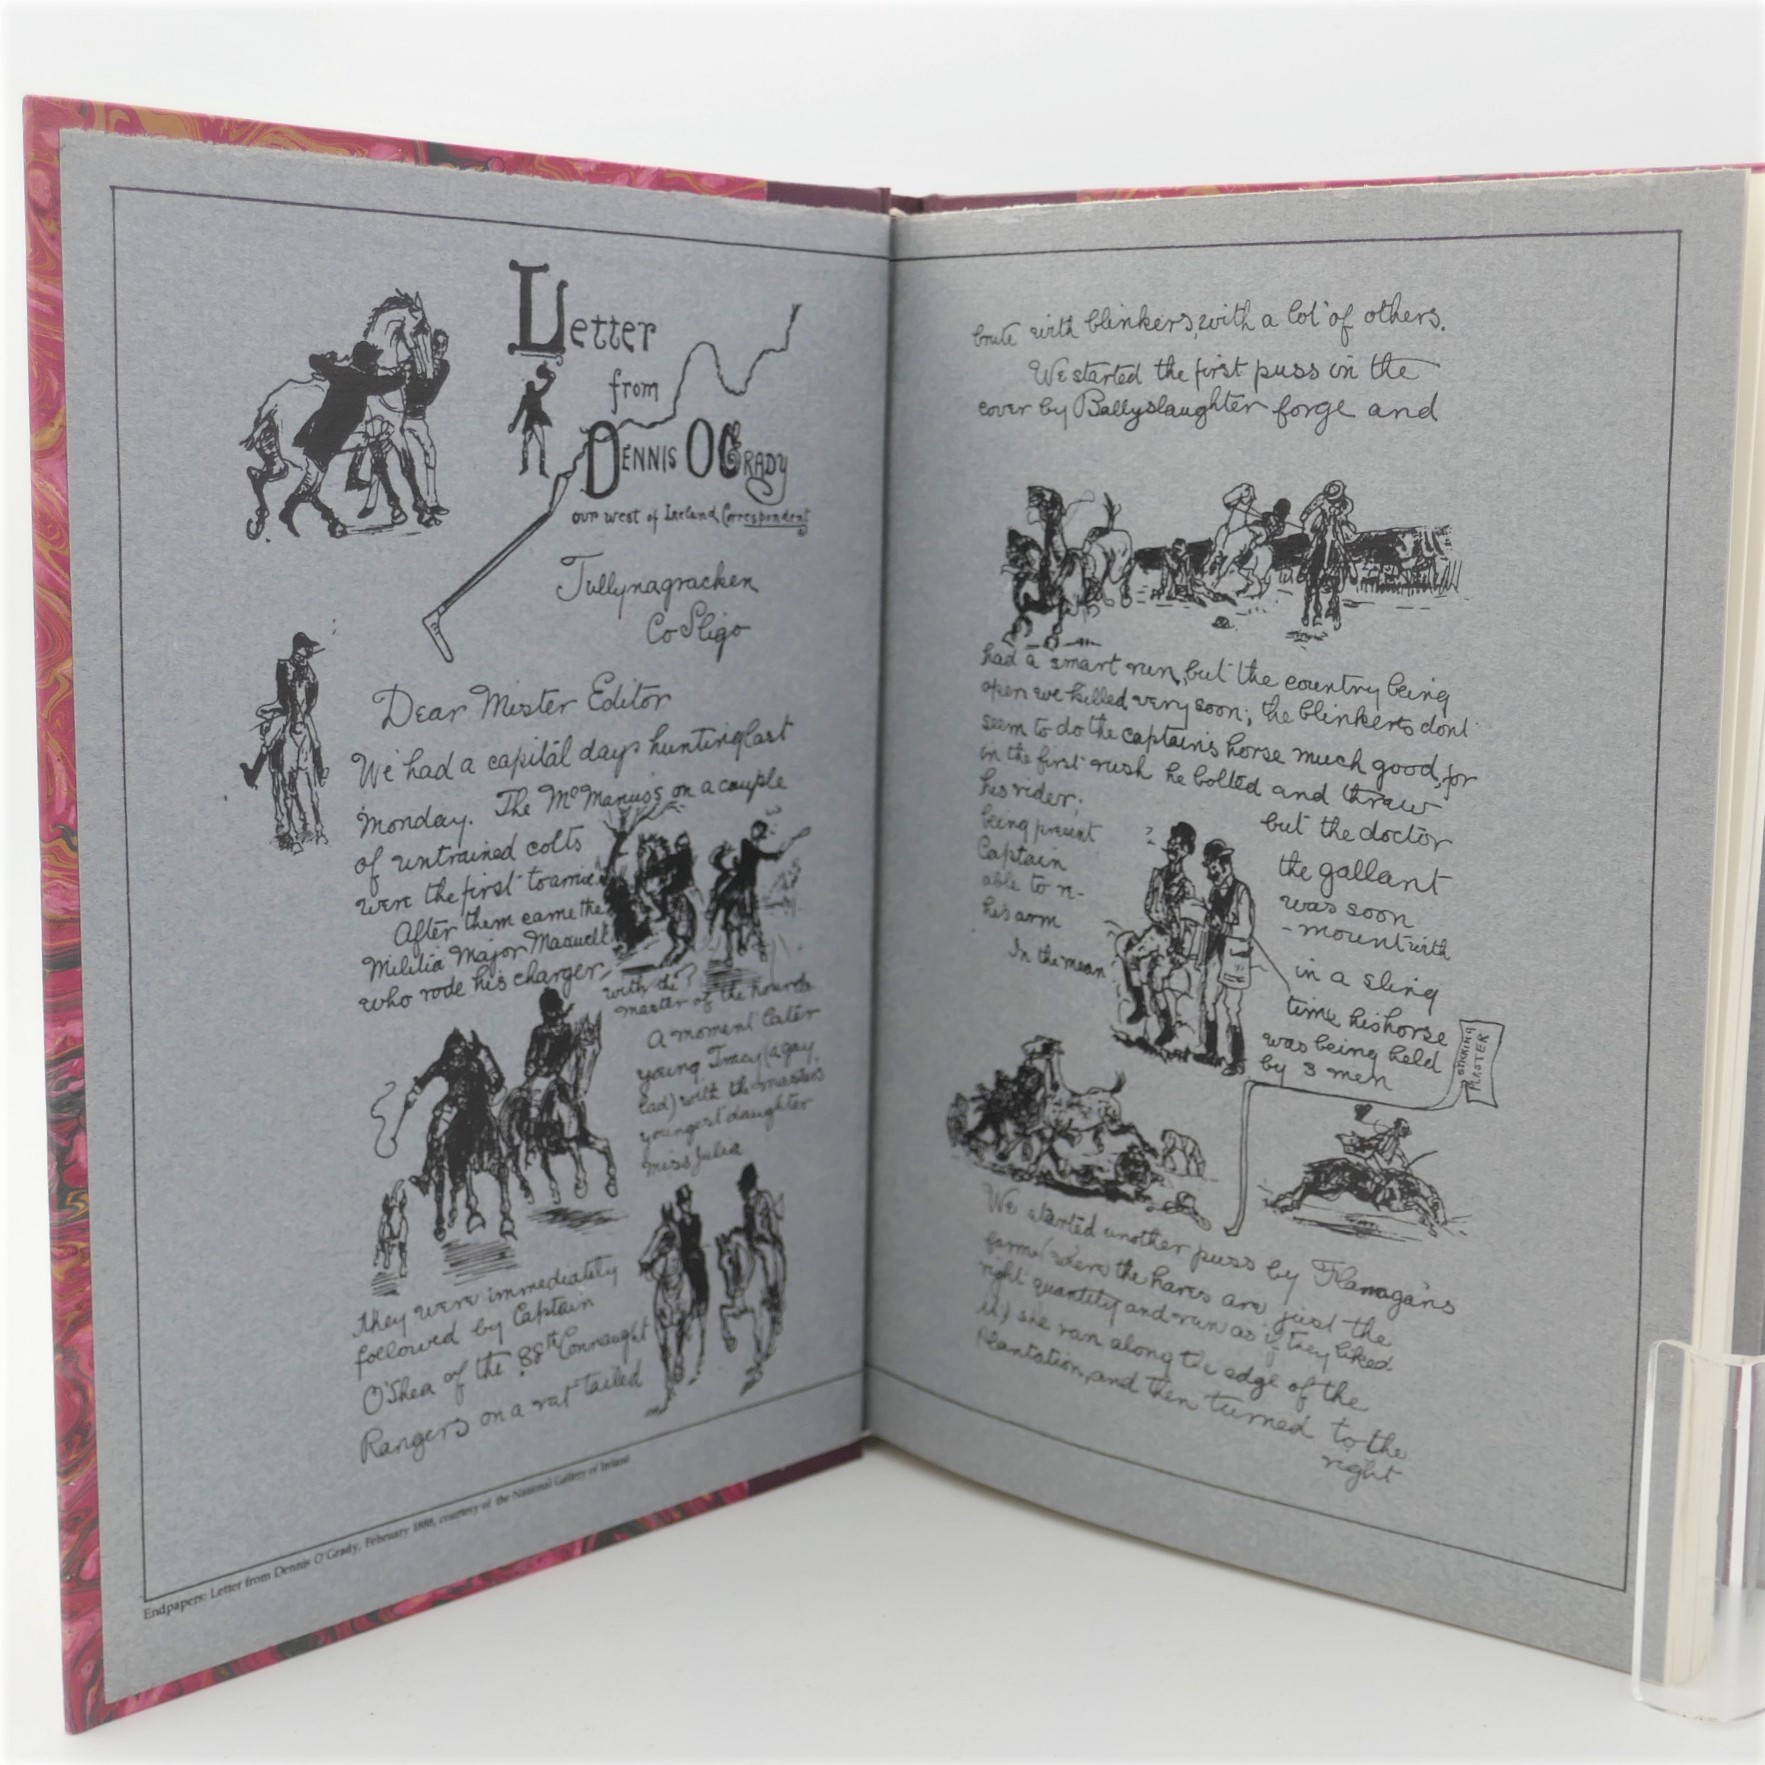 Letter
from
Dennis O'Grady
our west of Ireland Correspondent
Tullynagracken
Co Sligo
Dear Mister Editor
We had a capital days hunting last
Monday. The McManus's on a couple
of untrained colts
were the first to arrive
After them came the
Militia Major Maxwell
who rode his charger
with the ?
master of the hounds
A moment later
young Tracy (a gay
lad) with the masters
youngest daughter
Miss Julia
they were immediately
followed by Captain
O'Shea of the 88th Connaught
Rangers on a rat tailed
Endpapers: Letter from Dennis O'Grady, February 1888, courtesy of the National Gallery of Ireland
brute with blinkers, with a lot of others.
We started the first puss in the
cover by Ballyslaughter forge and
had a smart run, but the country being
open we killed very soon; the blinkers dont
seem to do the captain's horse much good, for
in the first rush he bolted and threw
his rider; but the doctor
being present the gallant
Captain was soon
able to r- -mount with
his arm in a sling
In the mean time his horse
was being held
by 3 men
?
STICKING
PLASTER
We started another puss by Flanagan's
farm (where the hares are just the
right quantity and run as if they liked
it) she ran along the edge of the
plantation, and then turned to the
right